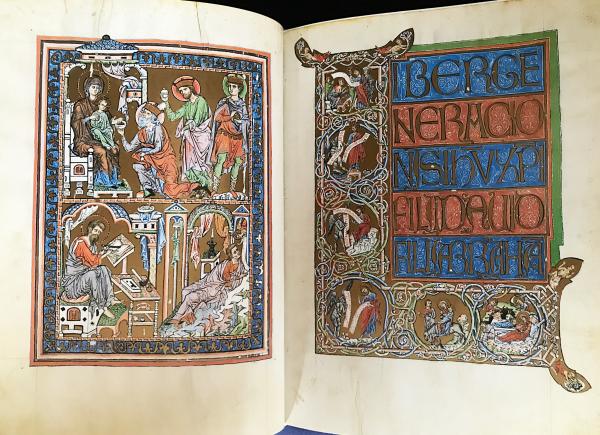 LIBER GE
NERACIO
NIS IHV XPI
FILII DAVID
FILII ABRAHA